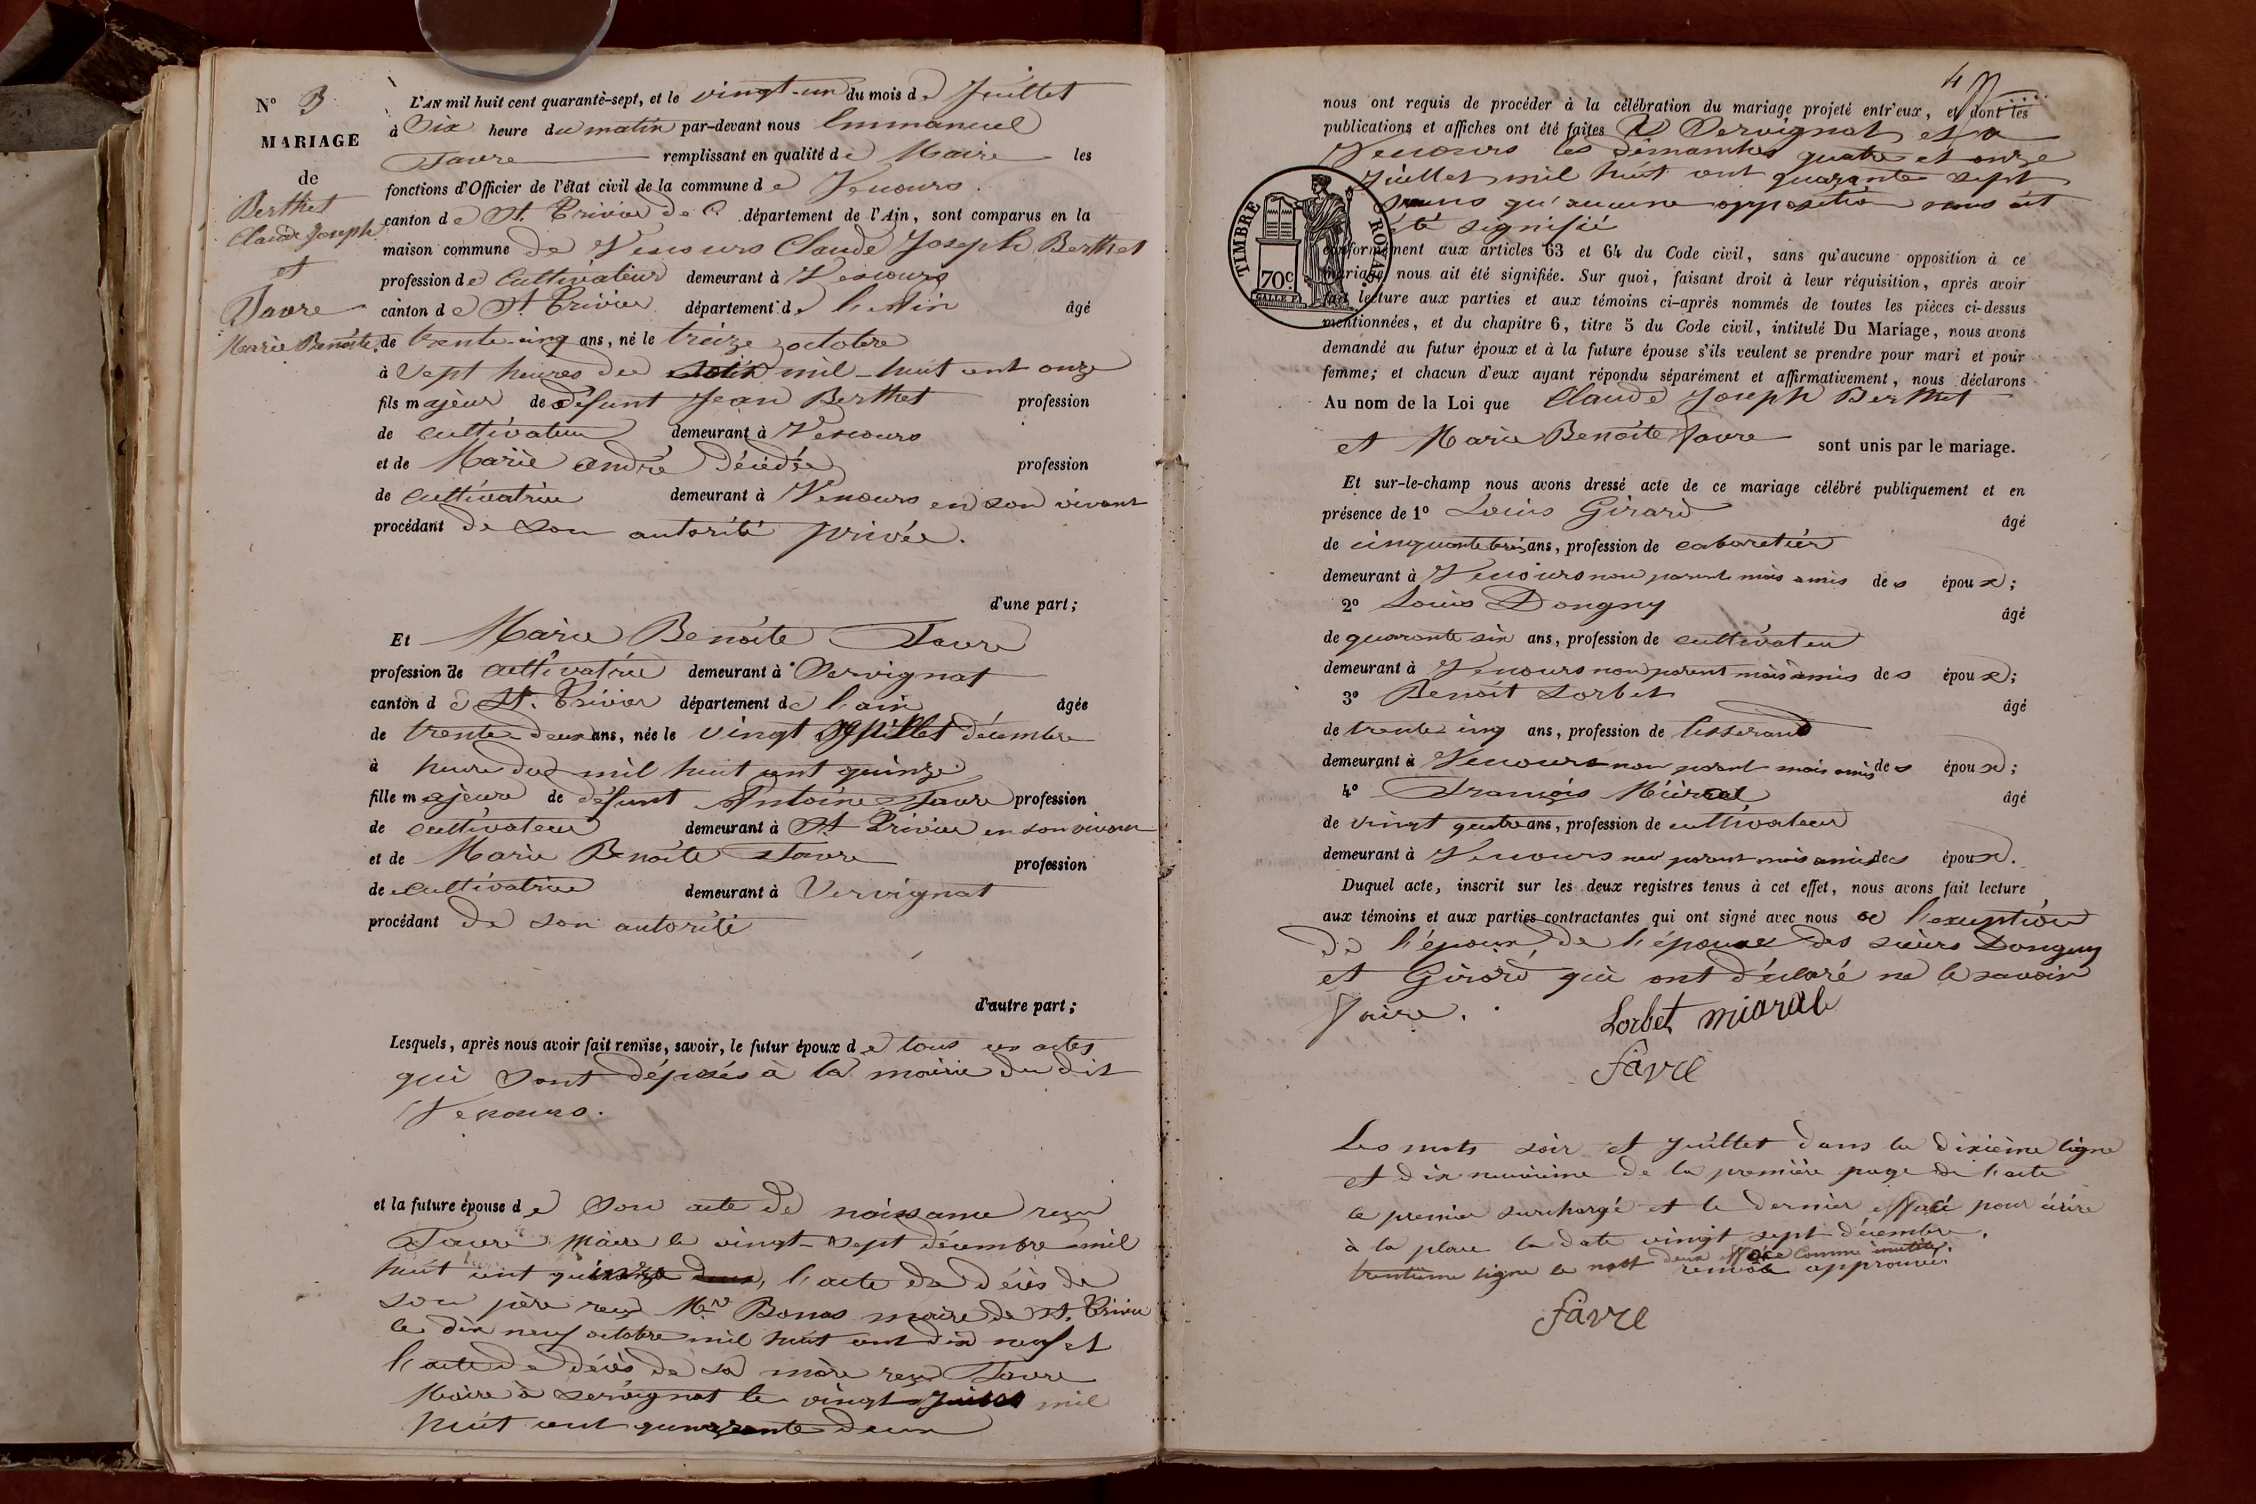 N° 3
MARIAGE
de
Berthet
Claude Joseph
et
Favre
Marie Benoite.
L'AN mil huit cent quarante-sept, et le vingt-un du mois de Juillet
à Dix heure du matin par-devant nous Emmanuel
Favre remplissant en qualité de Maire les
fonctions d'Officier de l'état civil de la commune de Vescours.
canton de St. Trivier de C. département de l'Ain, sont comparus en la
maison commune de Vescours Claude Joseph Berthet
profession de Cultivateur demeurant à Vescours
canton de St. Trivier département de l'Ain âgé
de trente-cinq ans, né le treize octobre
à Sept heures du soir mil-huit cent onze
fils majeur de défunt Jean Berthet profession
de cultivateur demeurant à Vescours
et de Marie André Décédée profession
de cultivatrice demeurant à Vescours en son vivant
procédant de son autorité privée.
d'une part;
Et Marie Benoite Favre
profession de cultivatrice demeurant à Servignat
canton de St. Trivier département de l'ain âgée
de trente deux ans, née le vingt sept décembre
à heure du mil huit cent quinze
fille majeure de défunt Antoine Favre profession
de cultivateur demeurant à St Trivier en son vivant
et de Marie Benoite Favre profession
de cultivatrice demeurant à Servignat
procédant de son autorité
d'autre part;
Lesquels, après nous avoir fait remise, savoir, le futur époux de tous ces actes
qui sont déposés à la mairie du dit
Vescours.
et la future épouse de Son acte de naissance reçu
Favre Maire le vingt-sept décembre mil
huit cent quinze, l'acte de décès de
son père reçu Mr Bonas maire de St. Trivier
le dix neuf octobre mil huit cent dix neuf et
l'acte de décès de sa mère reçu Favre
Maire à Servignat le vingt mil
huit cent quarante deux
4
nous ont requis de procéder à la célébration du mariage projeté entr'eux, et dont les
publications et affiches ont été faites à Servignat et a
Vescours les dimanches quatre et onze
Juillet mil huit cent quarante sept
sans qu'aucune opposition nous ait
été signifié
TIMBRE ROYAL
70c.
conformément aux articles 63 et 64 du Code civil, sans qu'aucune opposition à ce
mariage nous ait été signifiée. Sur quoi, faisant droit à leur réquisition, après avoir
fait lecture aux parties et aux témoins ci-après nommés de toutes les pièces ci-dessus
mentionnées, et du chapitre 6, titre 5 du Code civil, intitulé Du Mariage, nous avons
demandé au futur époux et à la future épouse s'ils veulent se prendre pour mari et pour
femme; et chacun d'eux ayant répondu séparément et affirmativement, nous déclarons
Au nom de la Loi que Claude Joseph Berthet
et Marie Benoite Favre sont unis par le mariage.
Et sur-le-champ nous avons dressé acte de ce mariage célébré publiquement et en
présence de 1° Louis Girard âgé
de cinquante trois ans, profession de cabaretier
demeurant à Vescours non parent mais amis des époux;
2° Louis Dongny âgé
de quarante six ans, profession de cultivateu
demeurant à Vescours non parent mais amis des époux;
3° Benoit Lorbet âgé
de trente cinq ans, profession de tisserand
demeurant à Vescours non parent mais amis des époux;
4° François Miaral âgé
de vingt quatre ans, profession de cultivateur
demeurant à Vescours non parent mais amis des époux.
Duquel acte, inscrit sur les deux registres tenus à cet effet, nous avons fait lecture
aux témoins et aux parties contractantes qui ont signé avec nous à l'exception
de l'époux de l'épouse des sieurs Donguy
et Girard qui ont déclaré ne le savoir
faire.
Lorbet miaral
favre
Les mots soir et Juillet dans la dixième ligne
et dix neuvième de la première page de l'acte
le premier surchargé et le dernier effacé pour écrire
à la place la date vingt sept décembre.
trentième ligne le mot deux effacé comme inutile.
renvoi approuvé.
favre